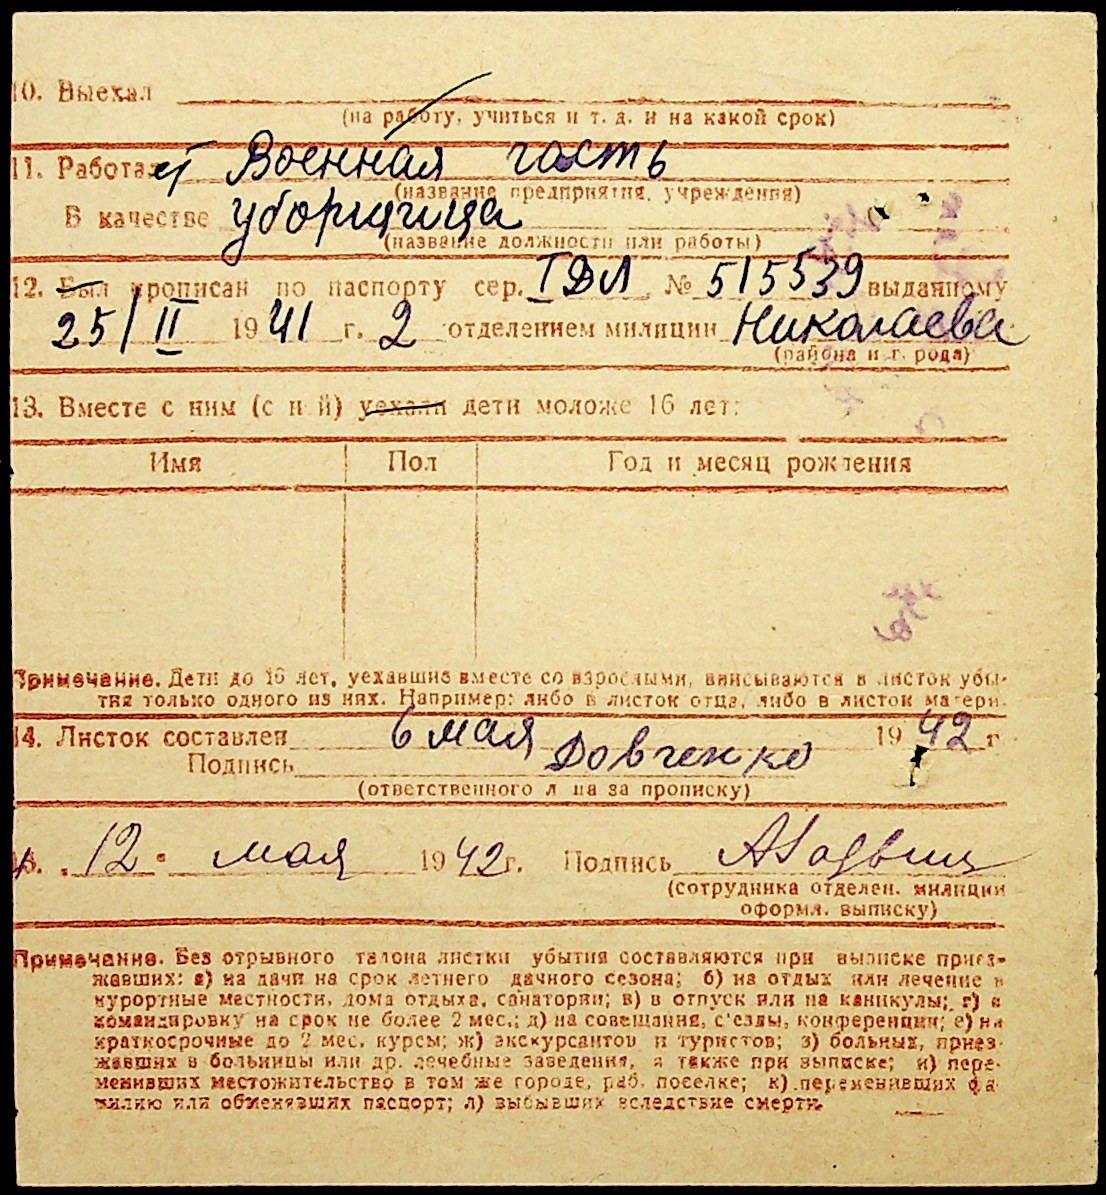 10. Выехал
(на работу, учиться и т. д. и на какой срок)
11. Работает Военная часть
(название предприятия, учреждения)
В качестве уборщица
(название должности или работы)
12. Был прописан по паспорту сер. IДЛ № 515539 выданному
25/II 1941 г. 2 отделением милиции Николаева
(района и города)
13. Вместе с ним (с ней) уехали дети моложе 16 лет:
Имя Пол Год и месяц рождения
Примечание. Дети до 16 лет, уехавшие вместе со взрослыми, вписываются в листок убы-
тия только одного из них. Например: либо в листок отца, либо в листок матери.
14. Листок составлен 6 мая 1942 г
Подпись Довченко
(ответственного лица за прописку)
12 мая 1942 г. Подпись
(сотрудника отделен. милиции
оформл. выписку)
Примечание. Без отрывного талона листки убытия составляются при выписке приез-
жавших: а) на дачи на срок летнего дачного сезона; б) на отдых или лечение в
курортные местности, дома отдыха, санатории; в) в отпуск или на каникулы; г) в
командировку на срок не более 2 мес.; д) на совещания, с'езды, конференции; е) на
краткосрочные до 2 мес. курсы; ж) экскурсантов и туристов; з) больных, приез-
жавших в больницы или др. лечебные заведения, а также при выписке; и) пере-
менивших местожительство в том же городе, раб. поселке; к) переменивших фа
милию или обменявших паспорт; л) выбывших вследствие смерти.